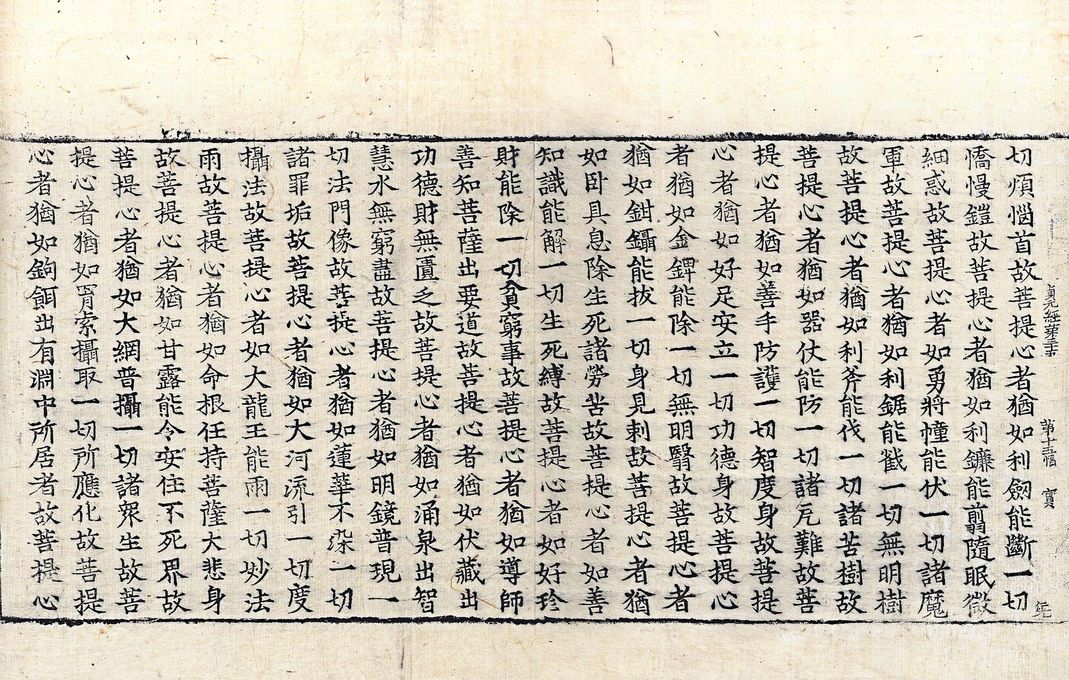 切煩惱首故菩提心者猶如利劒能斷一切
貞元經第三十 第十三幅 賓
憍慢鎧故菩提心者猶如利鐮能翦隨眠微
細惑故菩提心者如勇將幢能伏一切諸魔
軍故菩提心者猶如利鋸能截一切無明樹
故菩提心者猶如利斧能伐一切諸苦樹故
菩提心者猶如器仗能防一切諸厄難故菩
提心者猶如善手防護一切智度身故菩提
心者猶如好足安立一切功德身故菩提心
者猶如金錍能除一切無明瞖故菩提心者
猶如鉗鑷能拔一切身見刺故菩提心者猶
如卧具息除生死諸勞苦故菩提心者如善
知識能解一切生死縛故菩提心者如好珍
財能除一切貧窮事故菩提心者猶如導師
善知菩薩出要道故菩提心者猶如伏藏出
功德財無匱乏故菩提心者猶如涌泉出智
慧水無窮盡故菩提心者猶如明鏡普現一
切法門像故菩提心者猶如蓮華不染一切
諸罪垢故菩提心者猶如大河流引一切度
攝法故菩提心者如大龍王能雨一切妙法
雨故菩提心者猶如命根任持菩薩大悲身
故菩提心者猶如甘露能令安住不死界故
菩提心者猶如大網普攝一切諸衆生故菩
提心者猶如罥索攝取一切所應化故菩提
心者猶如鉤餌出有淵中所居者故菩提心